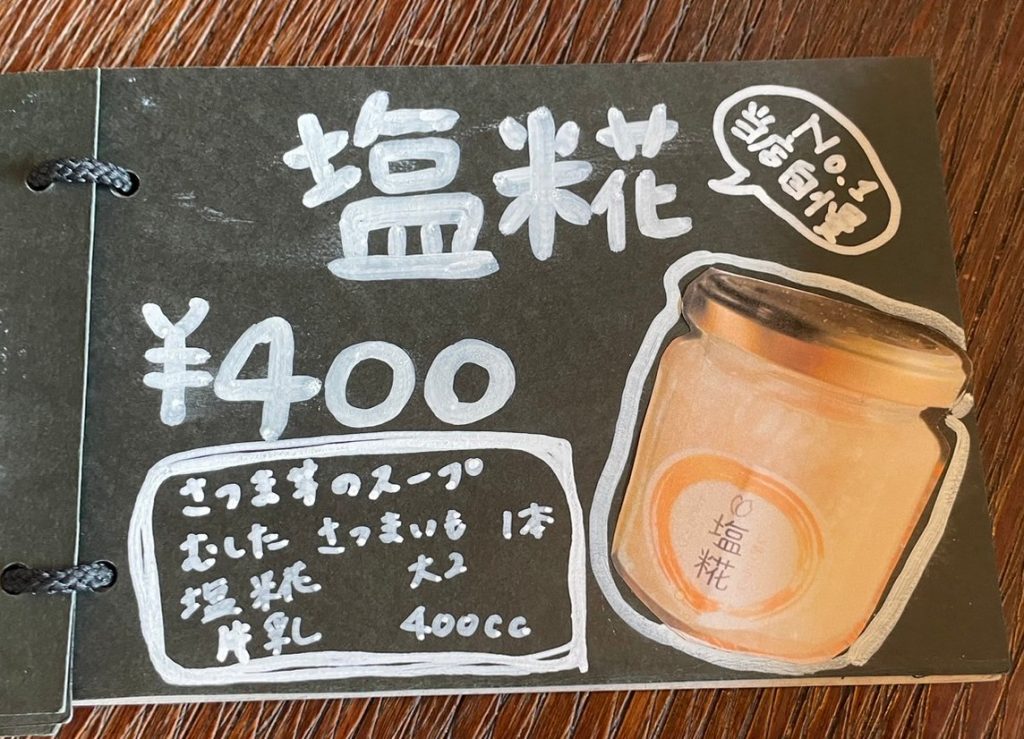 塩糀
No.1
当店自慢
¥400
さつま芋のスープ
むした さつまいも 1本
塩糀 大2
牛乳 400cc
塩
糀